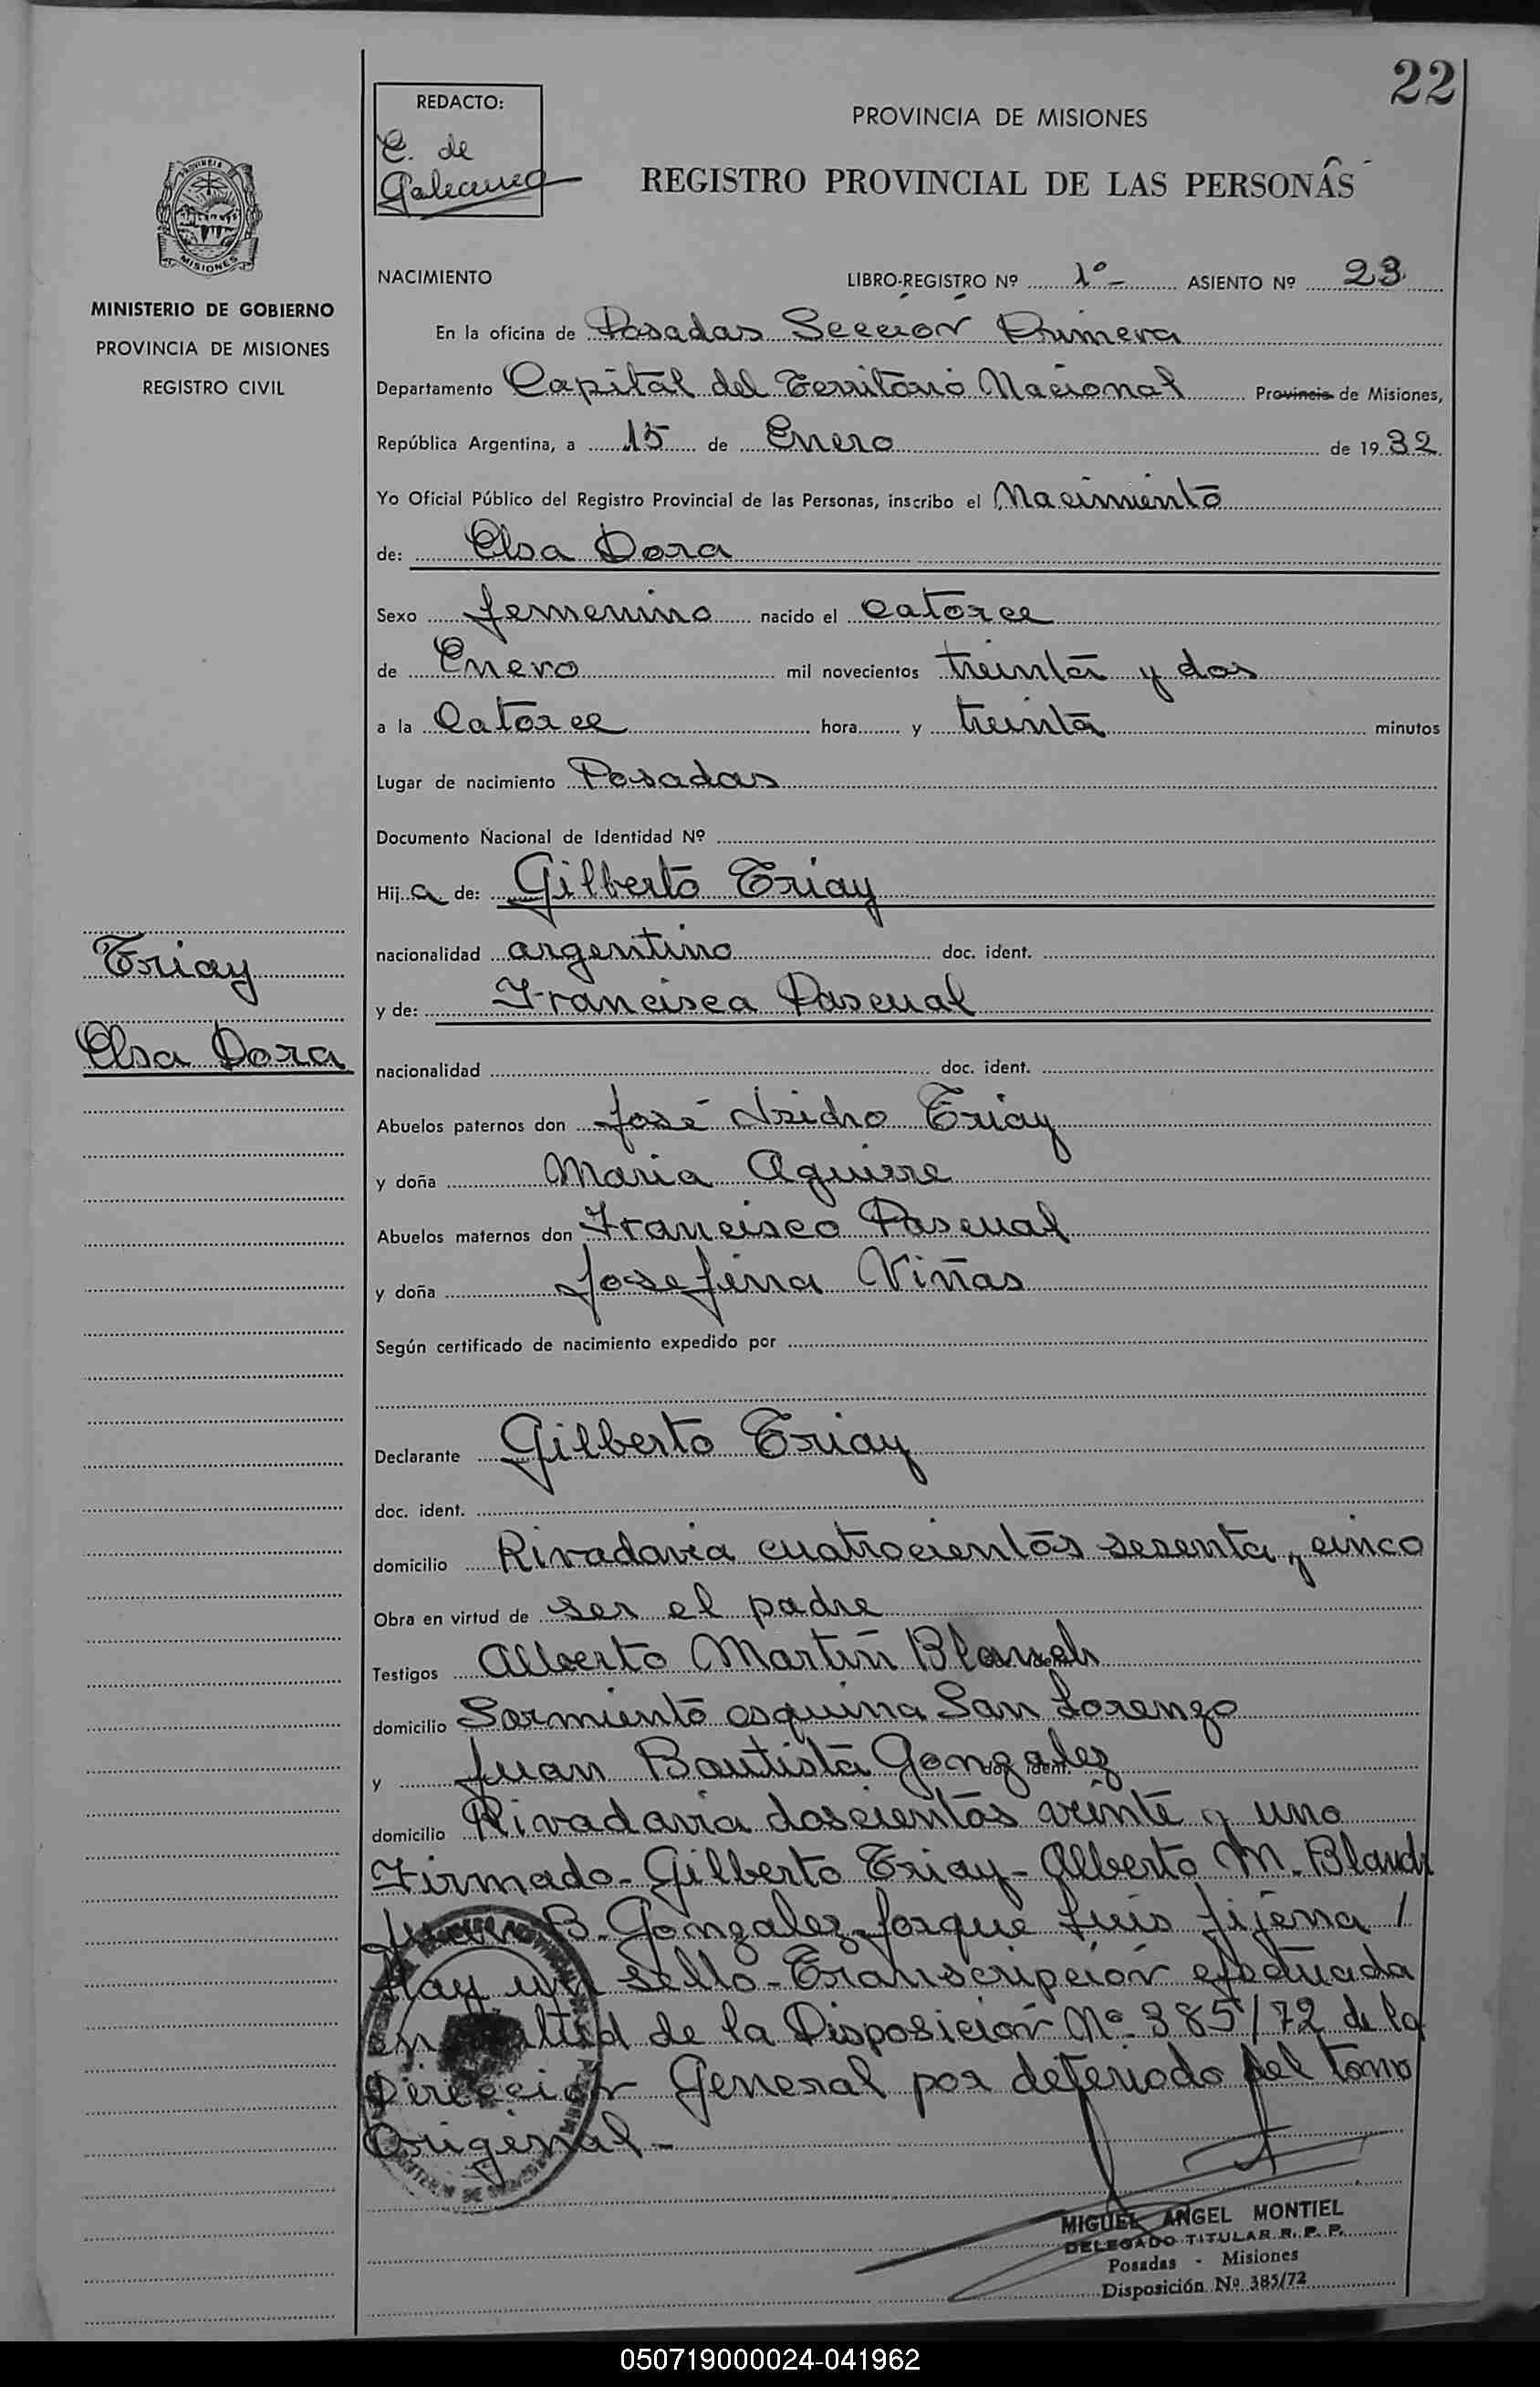 22
REDACTO:
C. de
Galeano
PROVINCIA DE MISIONES
REGISTRO PROVINCIAL DE LAS PERSONAS
PROVINCIA
MISIONES
MINISTERIO DE GOBIERNO
PROVINCIA DE MISIONES
REGISTRO CIVIL
NACIMIENTO LIBRO-REGISTRO Nº 1º- ASIENTO Nº 23
En la oficina de Posadas Sección Primera
Departamento Capital del Territorio Nacional Provincia de Misiones,
República Argentina, a 15 de Enero de 1932
Yo Oficial Público del Registro Provincial de las Personas, inscribo el Nacimiento
de: Elsa Dora
Sexo femenino nacido el catorce
de Enero mil novecientos treinta y dos
a la Catorce hora y treinta minutos
Lugar de nacimiento Posadas
Documento Nacional de Identidad Nº
Hija de: Gilberto Triay
nacionalidad argentino doc. ident.
y de: Francisca Pascual
nacionalidad doc. ident.
Triay
Elsa Dora
Abuelos paternos don José Isidro Triay
y doña Maria Aguirre
Abuelos maternos don Francisco Pascual
y doña Josefina Viñas
Según certificado de nacimiento expedido por
Declarante Gilberto Triay
doc. ident.
domicilio Rivadavia cuatrocientos sesenta y cinco
Obra en virtud de ser el padre
Testigos Alberto Martin
domicilio Sarmiento esquina San Lorenzo
y Juan Bautista Gonzalez
domicilio Rivadavia doscientos veinte y uno
Firmado- Gilberto Triay- Alberto M.
Juan B. Gonzalez- Jorque Luis Jijena /
Hay un sello- Transcripción efectuada
en virtud de la Disposición Nº 385/72 de la
Dirección General por deteriodo del tomo
Original-
MIGUEL ANGEL MONTIEL
DELEGADO TITULAR R. P. P.
Posadas - Misiones
Disposición Nº 385/72
050719000024-041962